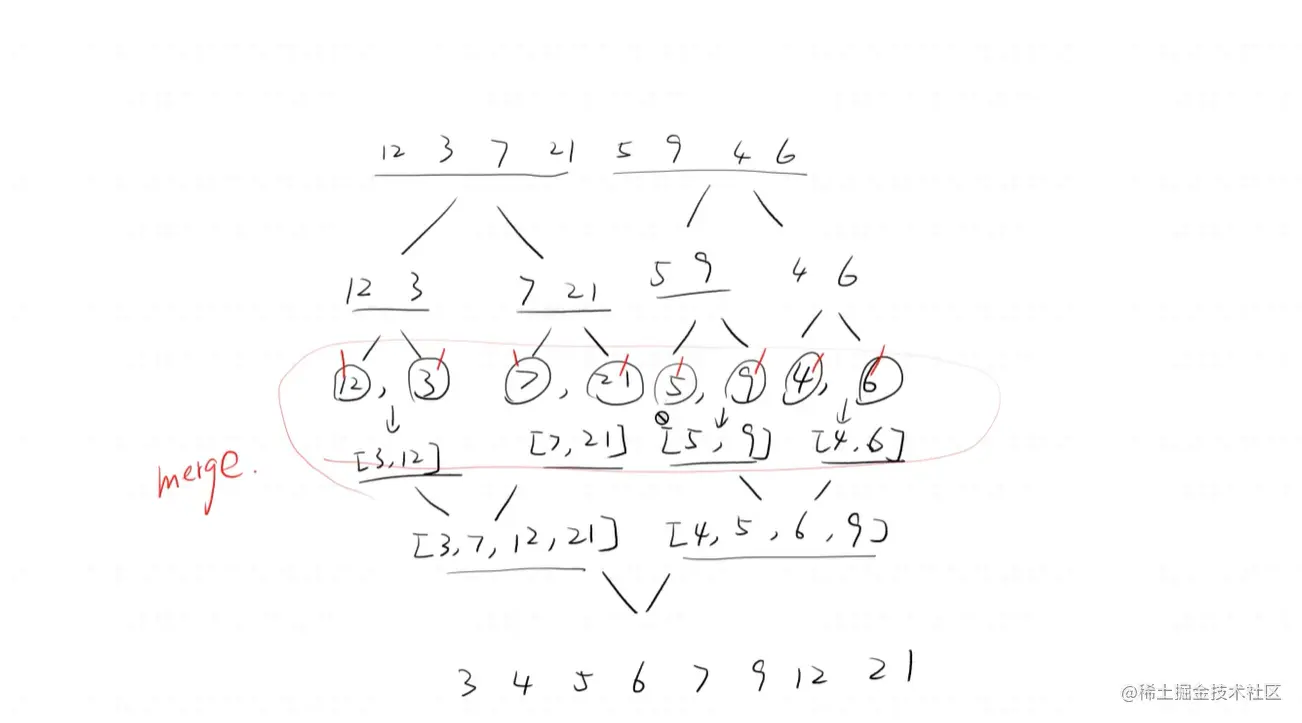 12 3 7 21 5 9 4 6
12 3 7 21 5 9 4 6
12, 3 7, 21 5, 9 4, 6
[3,12] [7,21] [5,9] [4,6]
merge.
[3,7,12,21] [4,5,6,9]
3 4 5 6 7 9 12 21
@稀土掘金技术社区